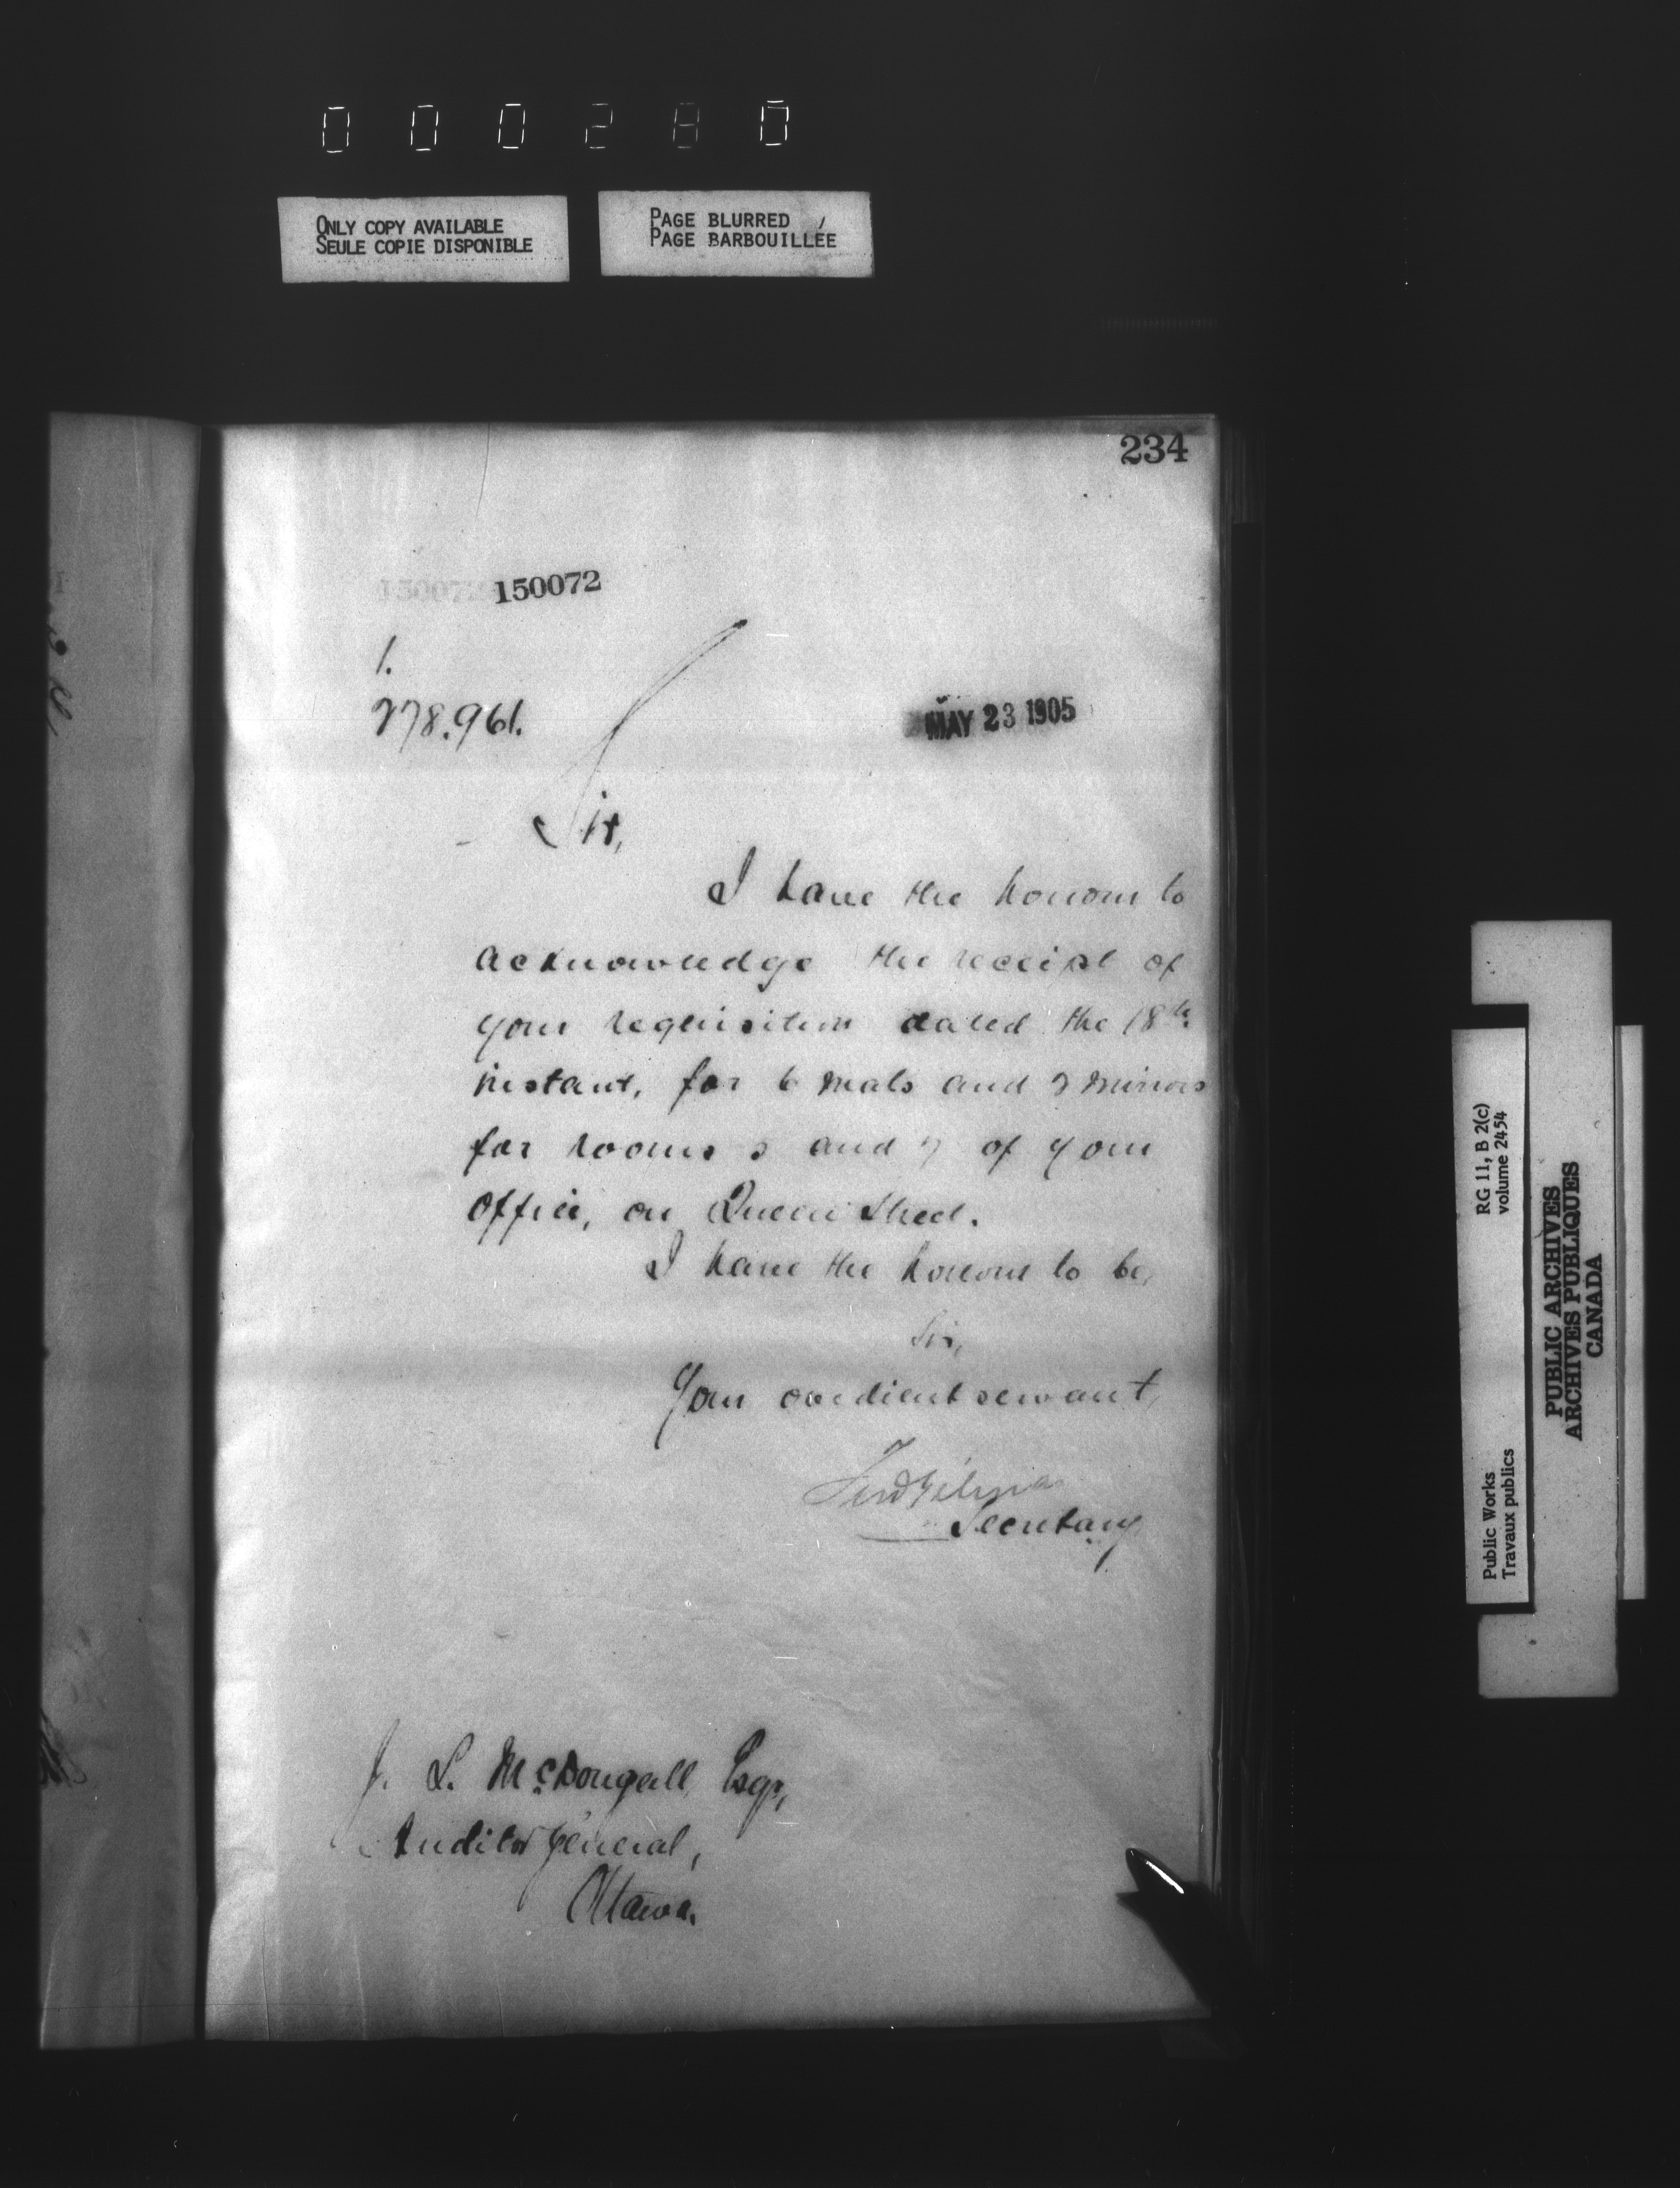 000280
ONLY COPY AVAILABLE
SEULE COPIE DISPONIBLE
PAGE BLURRED
PAGE BARBOUILLÉE
234
150072
1.
278.961.
MAY 23 1905
Sir,
I have the honour to
acknowledge the receipt of
your requisition dated the 18th
instant, for 6 mats and 2 mirrors
for rooms and of your
Office, on Queen Street.
I have the honour to be,
Sir,
Your obedient servant,
Secretary
J. L. McDougall, Esqr,
Auditor General,
Ottawa.
RG 11, B 2(c)
volume 2454
Public Works
Travaux publics
PUBLIC ARCHIVES
ARCHIVES PUBLIQUES
CANADA